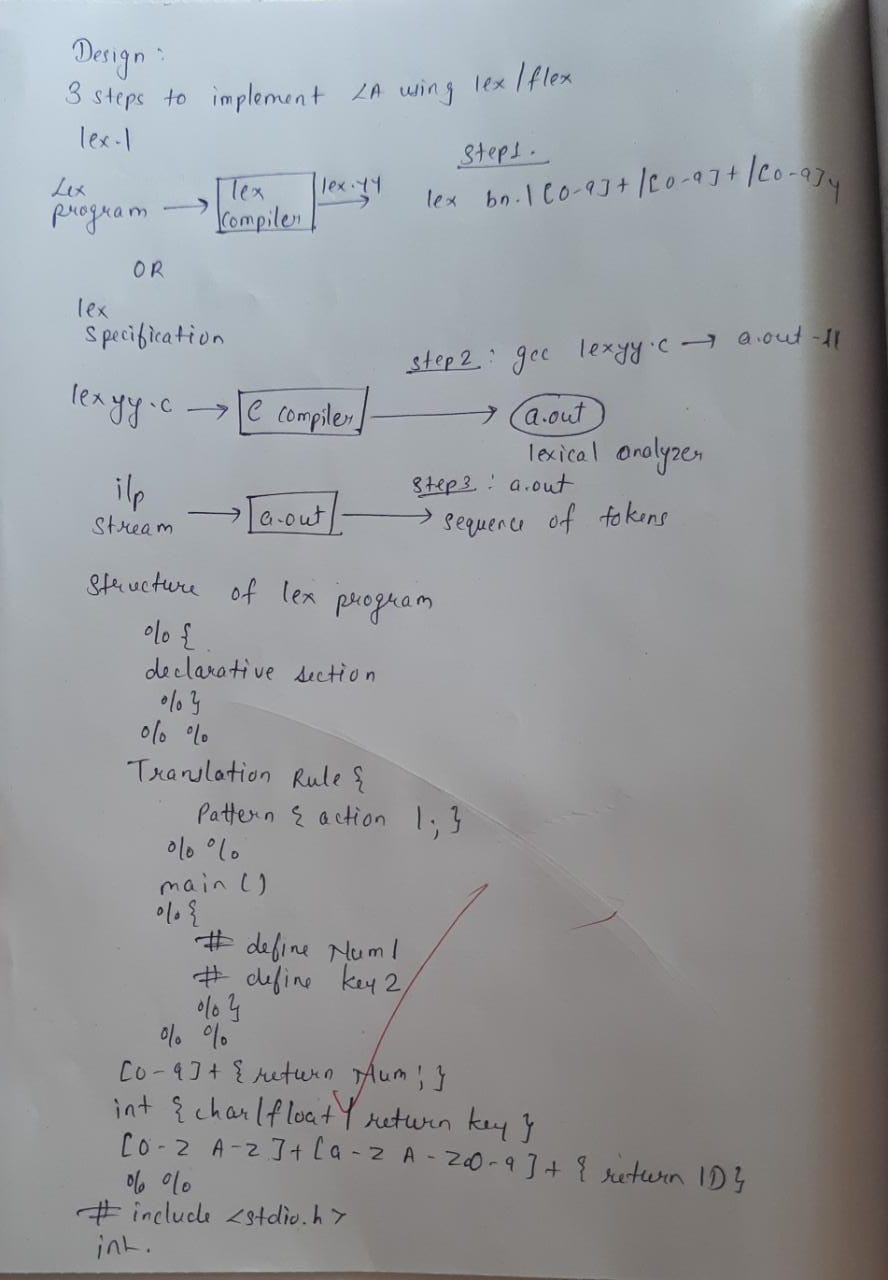 Design :
3 steps to implement LA using lex / flex
lex.l
Step 1.
Lex program → lex compiler lex.yy →
lex bn.l [0-9]+/[0-9]+/[0-9]y
OR
lex
Specification
step 2 : gcc lexyy.c → a.out -ll
lexyy.c → C compiler → a.out
lexical analyzer
Step 3 : a.out
i/p stream → a.out → sequence of tokens
Structure of lex program
% {
declarative section
% }
% %
Translation Rule {
Pattern { action 1 ; }
% %
main ()
% {
# define Num 1
# define key 2
% }
% %
[0-9]+ { return Num ; }
int { char/float } return key }
[0-z A-z]+[a-z A-z0-9]+ { return ID }
% %
# include <stdio.h>
int.